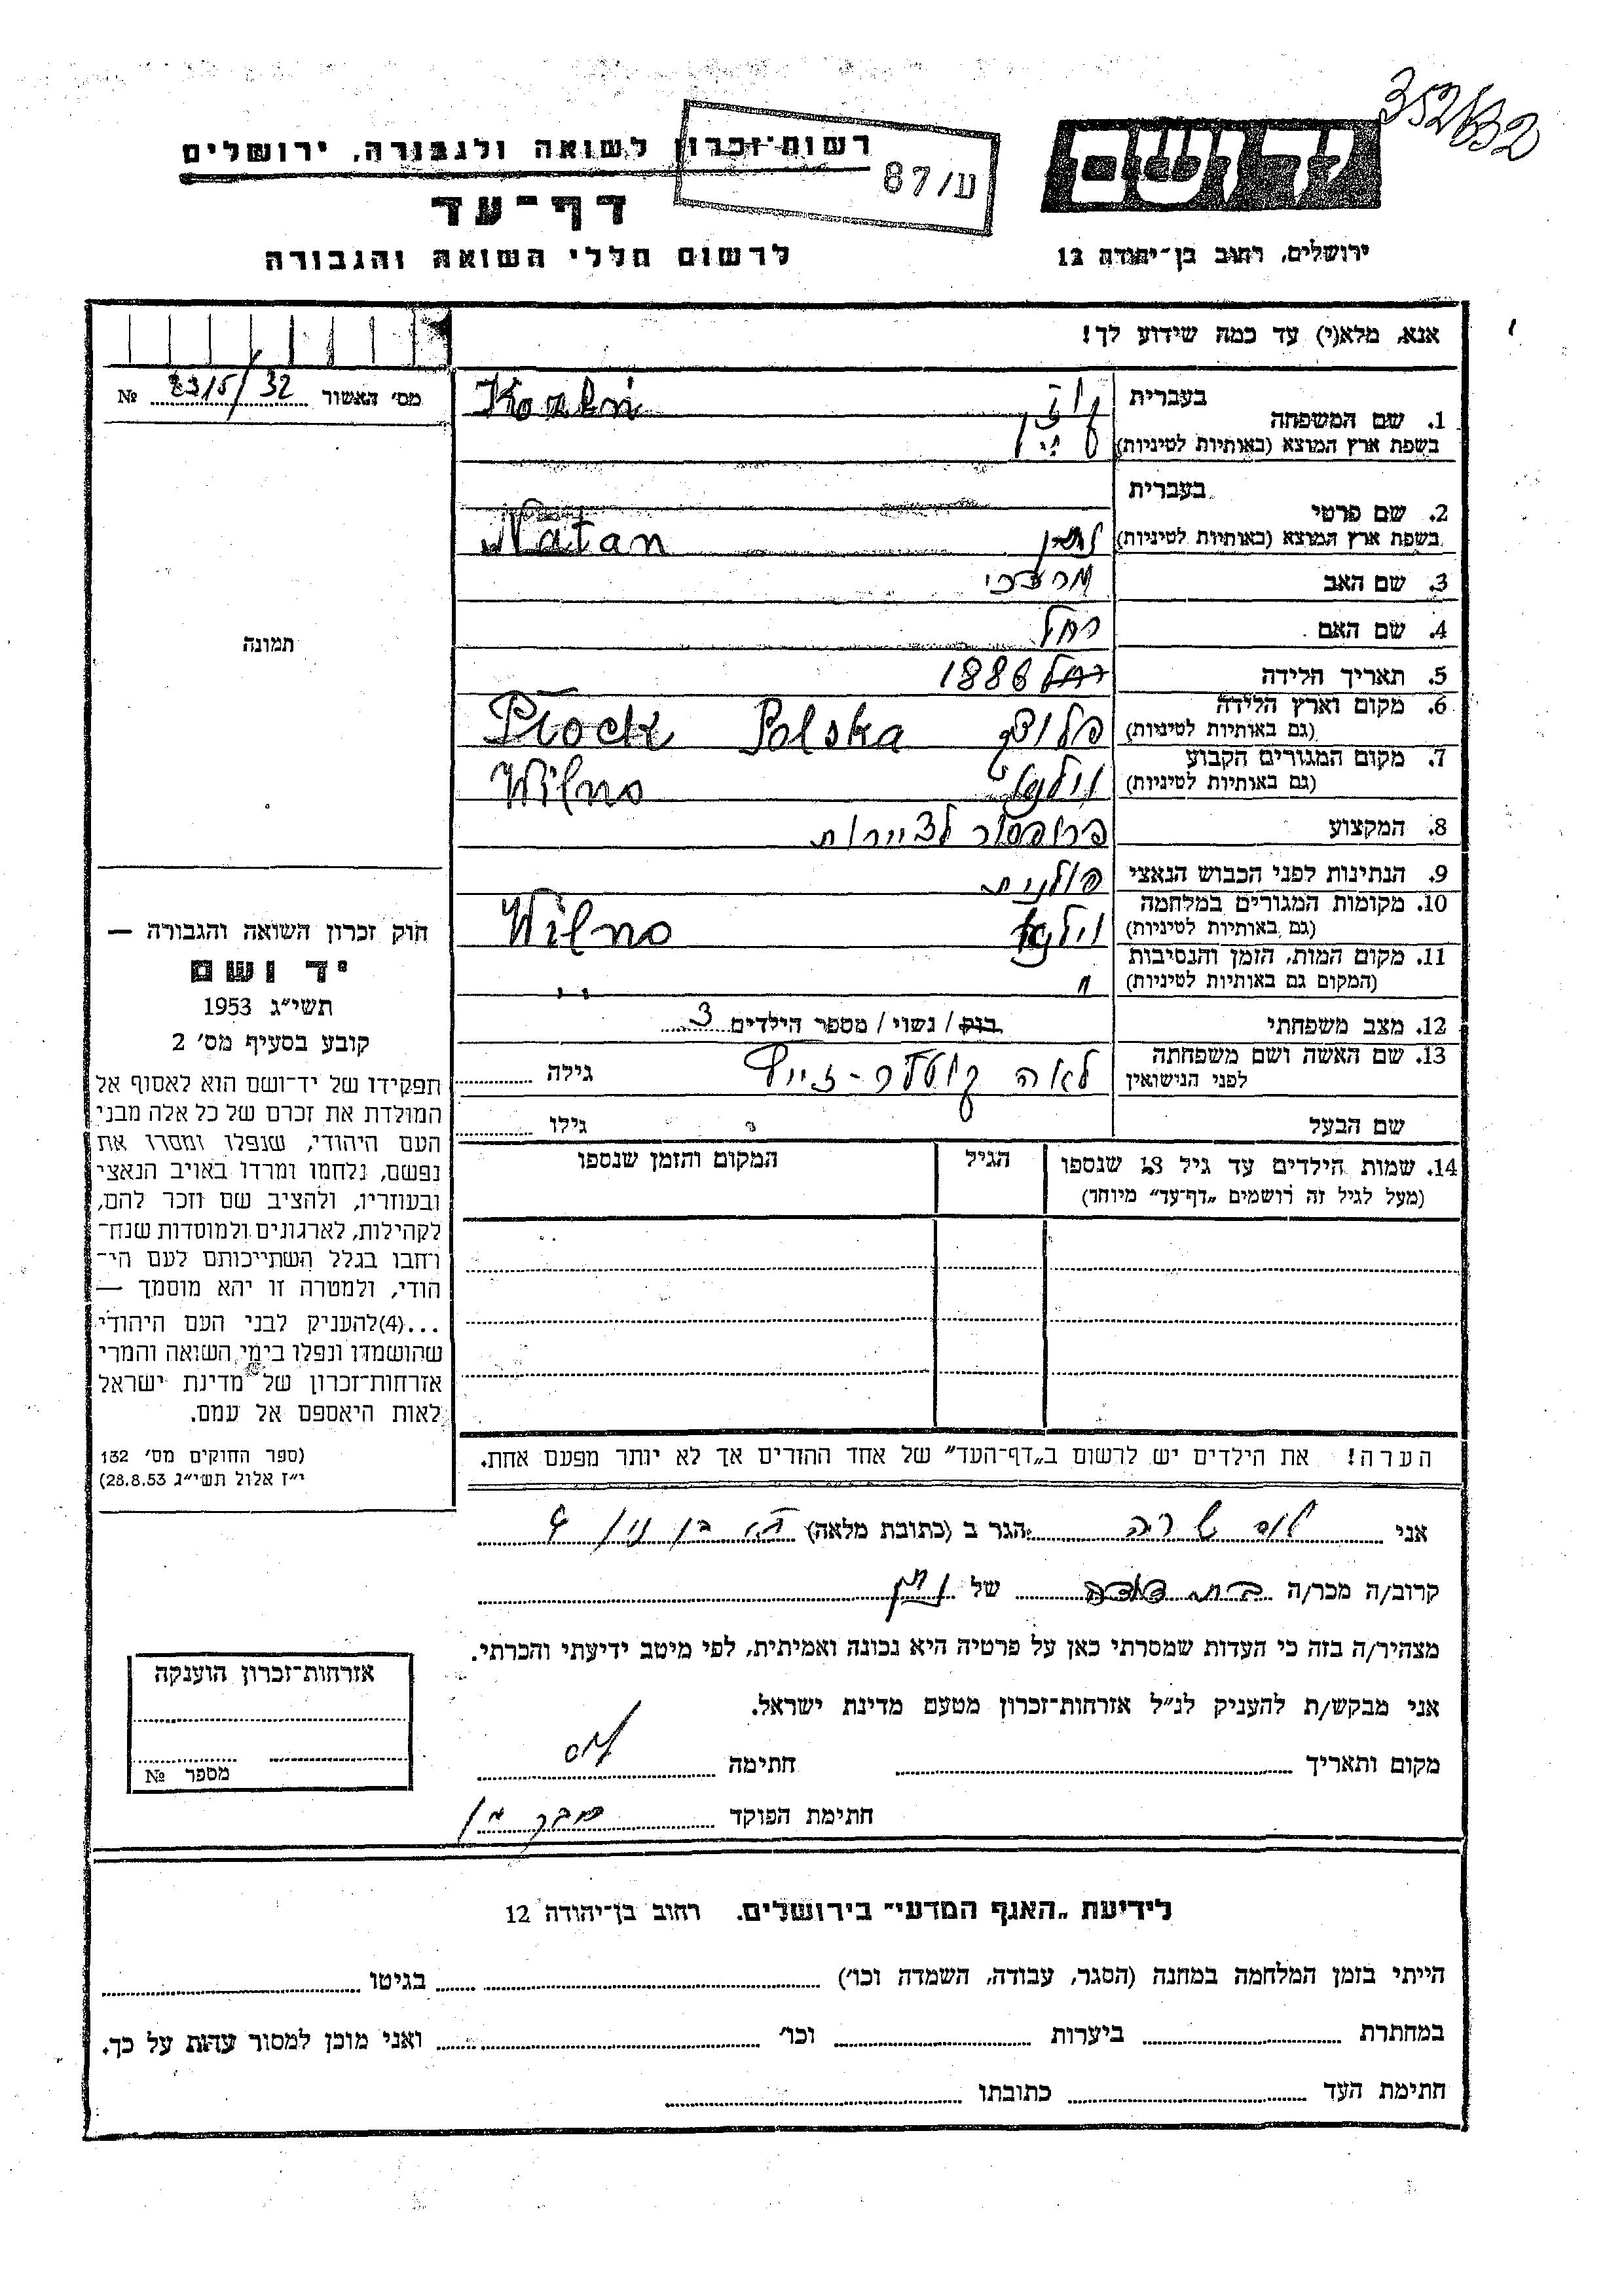 352632
ידושם
רשות־זכרון לשואה ולגבורה, ירושלים
ע/87
דף־עד
ירושלים, רחוב בן־יהודה 12
לרשום חללי השואה והגבורה
אנא, מלא(י) עד כמה שידוע לך!
מס׳ האשור 2315/32 №
1. שם המשפחה
בעברית
בשפת ארץ המוצא (באותיות לטיניות)
2. שם פרטי
בעברית
בשפת ארץ המוצא (באותיות לטיניות) נתן Natan
3. שם האב מרדכי
4. שם האם רחל
5. תאריך הלידה 1886
6. מקום וארץ הלידה
(גם באותיות לטיניות) פלוצק Płock Polska
7. מקום המגורים הקבוע
(גם באותיות לטיניות) וילנה Wilno
8. המקצוע פרופסור לציירות
9. הנתינות לפני הכבוש הנאצי פולנית
10. מקומות המגורים במלחמה
(גם באותיות לטיניות) וילנה Wilno
11. מקום המות, הזמן והנסיבות
(המקום גם באותיות לטיניות) " "
12. מצב משפחתי רווק / נשוי / מספר הילדים 3
13. שם האשה ושם משפחתה
לפני הנישואין לאה גילה
שם הבעל גילו
14. שמות הילדים עד גיל 18 שנספו
(מעל לגיל זה רושמים „דף־עד״ מיוחד)
הגיל
המקום והזמן שנספו
הערה! את הילדים יש לרשום ב„דף־העד״ של אחד ההורים אך לא יותר מפעם אחת.
תמונה
חוק זכרון השואה והגבורה —
יד ושם
תשי״ג 1953
קובע בסעיף מס׳ 2
תפקידו של יד־ושם הוא לאסוף אל
המולדת את זכרם של כל אלה מבני
העם היהודי, שנפלו ומסרו את
נפשם, נלחמו ומרדו באויב הנאצי
ובעוזריו, ולהציב שם וזכר להם,
לקהילות, לארגונים ולמוסדות שנח־
רחבו בגלל השתייכותם לעם הי־
הודי, ולמטרה זו יהא מוסמך —
...(4)להעניק לבני העם היהודי
שהושמדו ונפלו בימי השואה והמרי
אזרחות־זכרון של מדינת ישראל
לאות היאספם אל עמם.
(ספר החוקים מס׳ 132
י״ז אלול תשי״ג 28.8.53)
אני הגר ב (כתובת מלאה)
קרוב/ה מכר/ה בת דודה של נתן
מצהיר/ה בזה כי העדות שמסרתי כאן על פרטיה היא נכונה ואמיתית, לפי מיטב ידיעתי והכרתי.
אני מבקש/ת להעניק לנ״ל אזרחות־זכרון מטעם מדינת ישראל.
מקום ותאריך חתימה
חתימת הפוקד
אזרחות־זכרון הוענקה
מספר №
לידיעת „האגף המדעי״ בירושלים. רחוב בן־יהודה 12
הייתי בזמן המלחמה במחנה (הסגר, עבודה, השמדה וכו׳) בגיטו
במחתרת ביערות וכו׳ ואני מוכן למסור עדות על כך.
חתימת העד כתובתו